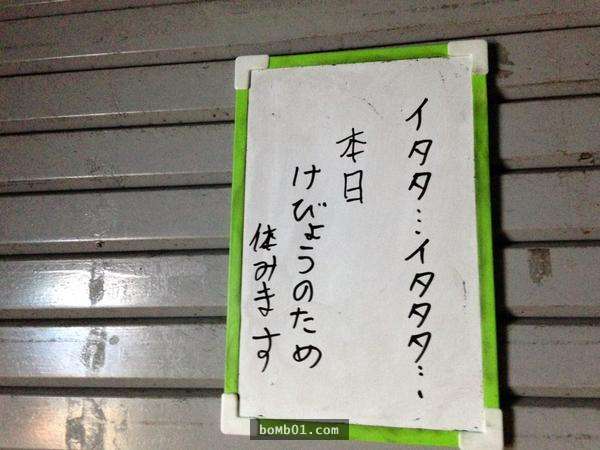 イタタ…イタタタ…
本日
けびょうのため
休みます
bomb01.com